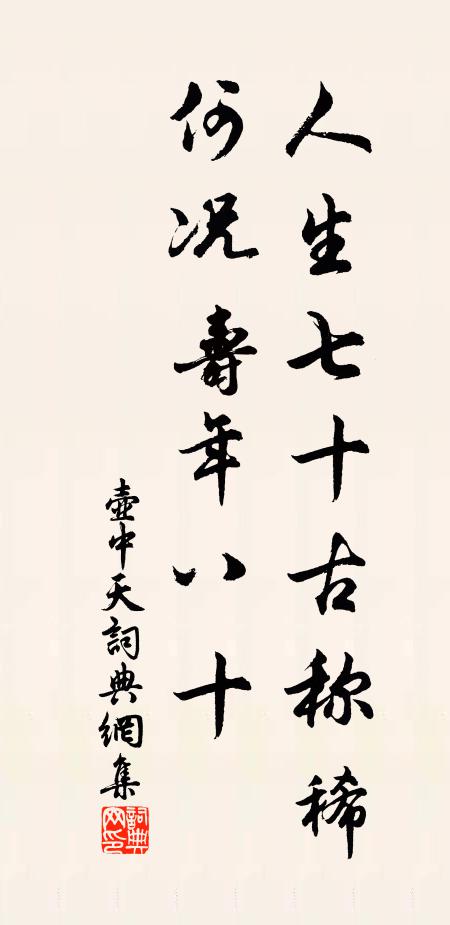 人生七十古称稀
何况壽年八十
壺中天詞典網集
詞典网印